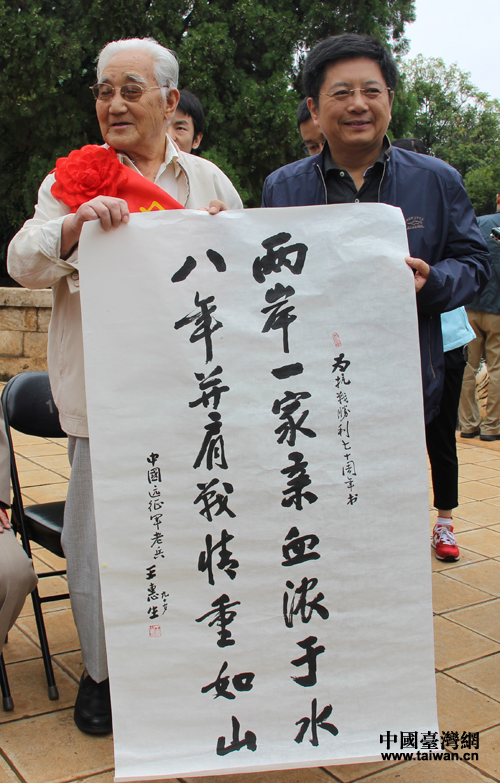 为抗战勝利七十周年书
兩岸一家亲血浓于水
八年并肩战情重如山
中國远征军老兵
王惠生
九十岁
中國臺灣網
www.taiwan.cn